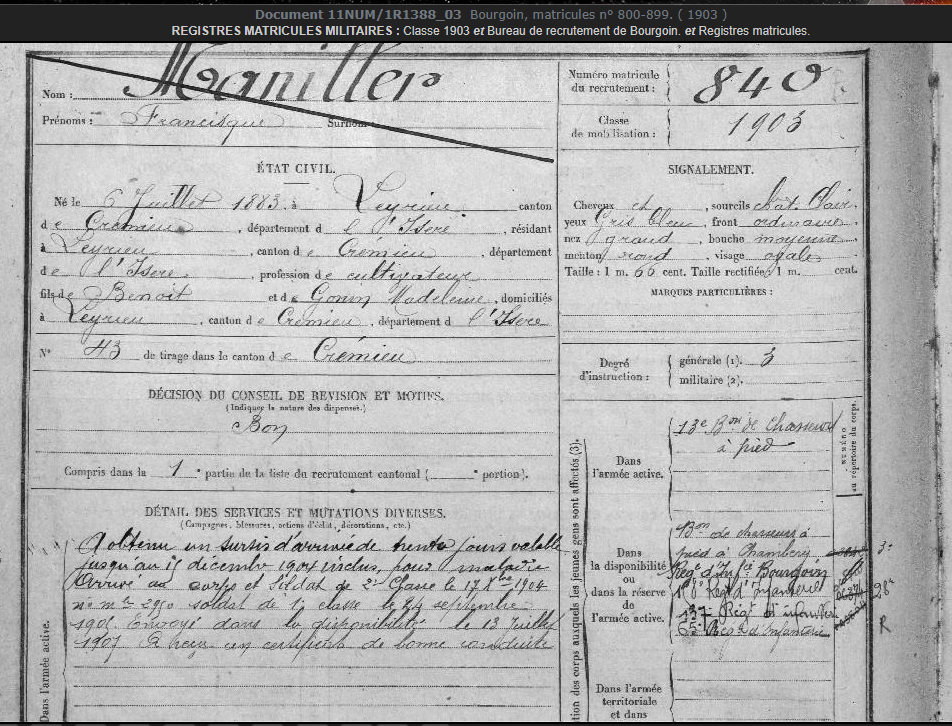 Document 11NUM/1R1388_03 Bourgoin, matricules n° 800-899. ( 1903 )
REGISTRES MATRICULES MILITAIRES : Classe 1903 et Bureau de recrutement de Bourgoin. et Registres matricules.
Nom : Maniller
Prénoms : Francisque Surnom
ÉTAT CIVIL.
Né le 6 Juillet 1883. à Leyrieu canton
de Crémieu, département d e l'Isère, résidant
à Leyrieu, canton de Crémieu, département
de l'Isère, profession de cultivateur
fils de Benoit et de Gonin Madeleine, domiciliés
à Leyrieu, canton d e Crémieu, département d l'Isère
N° 43 de tirage dans le canton d e Crémieu
DÉCISION DU CONSEIL DE REVISION ET MOTIFS.
(Indiquer la nature des dispenses.)
Bon
Compris dans la 1e partie de la liste du recrutement cantonal ( e portion).
DÉTAIL DES SERVICES ET MUTATIONS DIVERSES.
(Campagnes, blessures, actions d'éclat, décorations, etc.)
Dans l'armée active.
A obtenu un sursis d'arrivée de trente jours valable
jusqu'au 15 décembre 1904 inclus, pour maladie
Arrivé au corps et Soldat de 2e Classe le 17 Xbre 1904
n° mle 2950 soldat de 1e classe le 24 septembre
Envoyé dans la disponibilité le 13 Juillet
1907 A reçu un certificat de bonne conduite
Numéro matricule
du recrutement : 840
Classe
de mobilisation : 1903
SIGNALEMENT.
Cheveux ch, sourcils chât Clair
yeux Gris bleu, front ordinaire
nez grand, bouche moyenne
menton rond, visage ovale
Taille : 1 m. 66 cent. Taille rectifiée 1 m. cent.
MARQUES PARTICULIÈRES :
Degré
d'instruction :
générale (1). 3
militaire (2).
tion des corps auxquels les jeunes gens sont affectés (3).
NUMÉRO
au répertoire du corps.
Dans
l'armée active.
13e Bon de Chasseurs
à pied
Dans
la disponibilité
ou
dans la réserve
de
l'armée active.
Bon de chasseurs à
pied à Chambéry
Regt d'Infie Bourgoin
Régt d'Infanterie
137 Régt d'infanterie
Régt d'Infanterie
3e
28e
R
Dans l'armée
territoriale
et dans